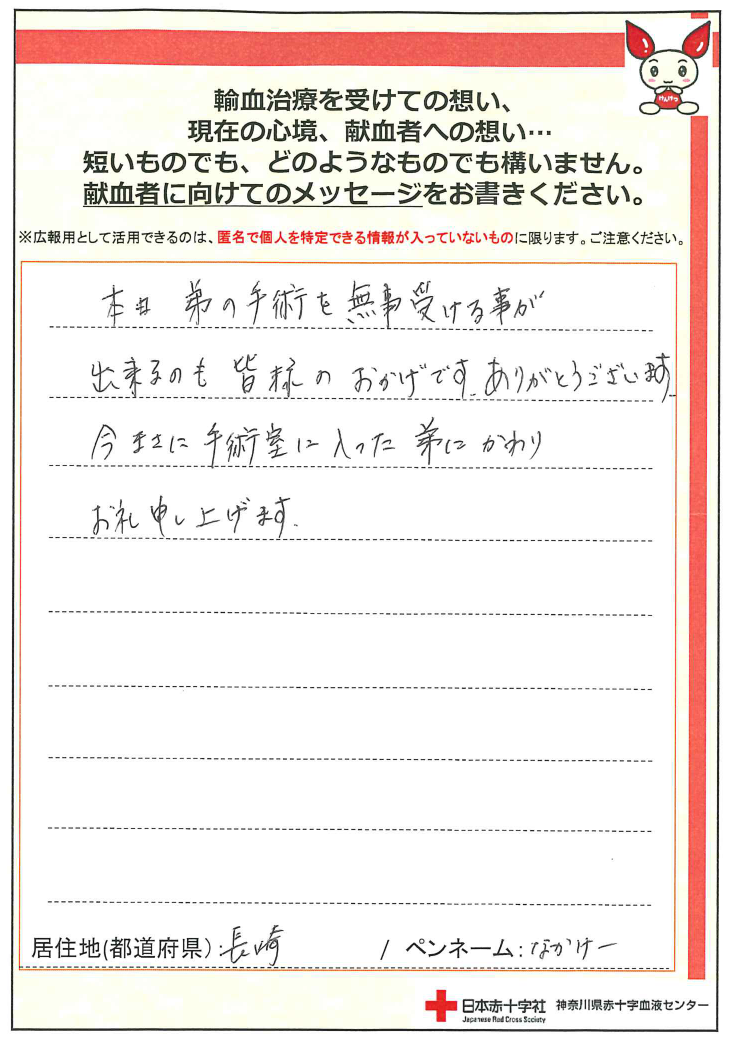 けんけつ
輸血治療を受けての想い、
現在の心境、献血者への想い…
短いものでも、どのようなものでも構いません。
献血者に向けてのメッセージをお書きください。
※広報用として活用できるのは、匿名で個人を特定できる情報が入っていないものに限ります。ご注意ください。
本日 弟の手術を無事受ける事が
出来るのも皆様のおかげです。ありがとうございます
今まさに手術室に入った弟にかわり
お礼申し上げます。
居住地(都道府県):長崎 / ペンネーム:なかけー
日本赤十字社 神奈川県赤十字血液センター
Japanese Red Cross Society